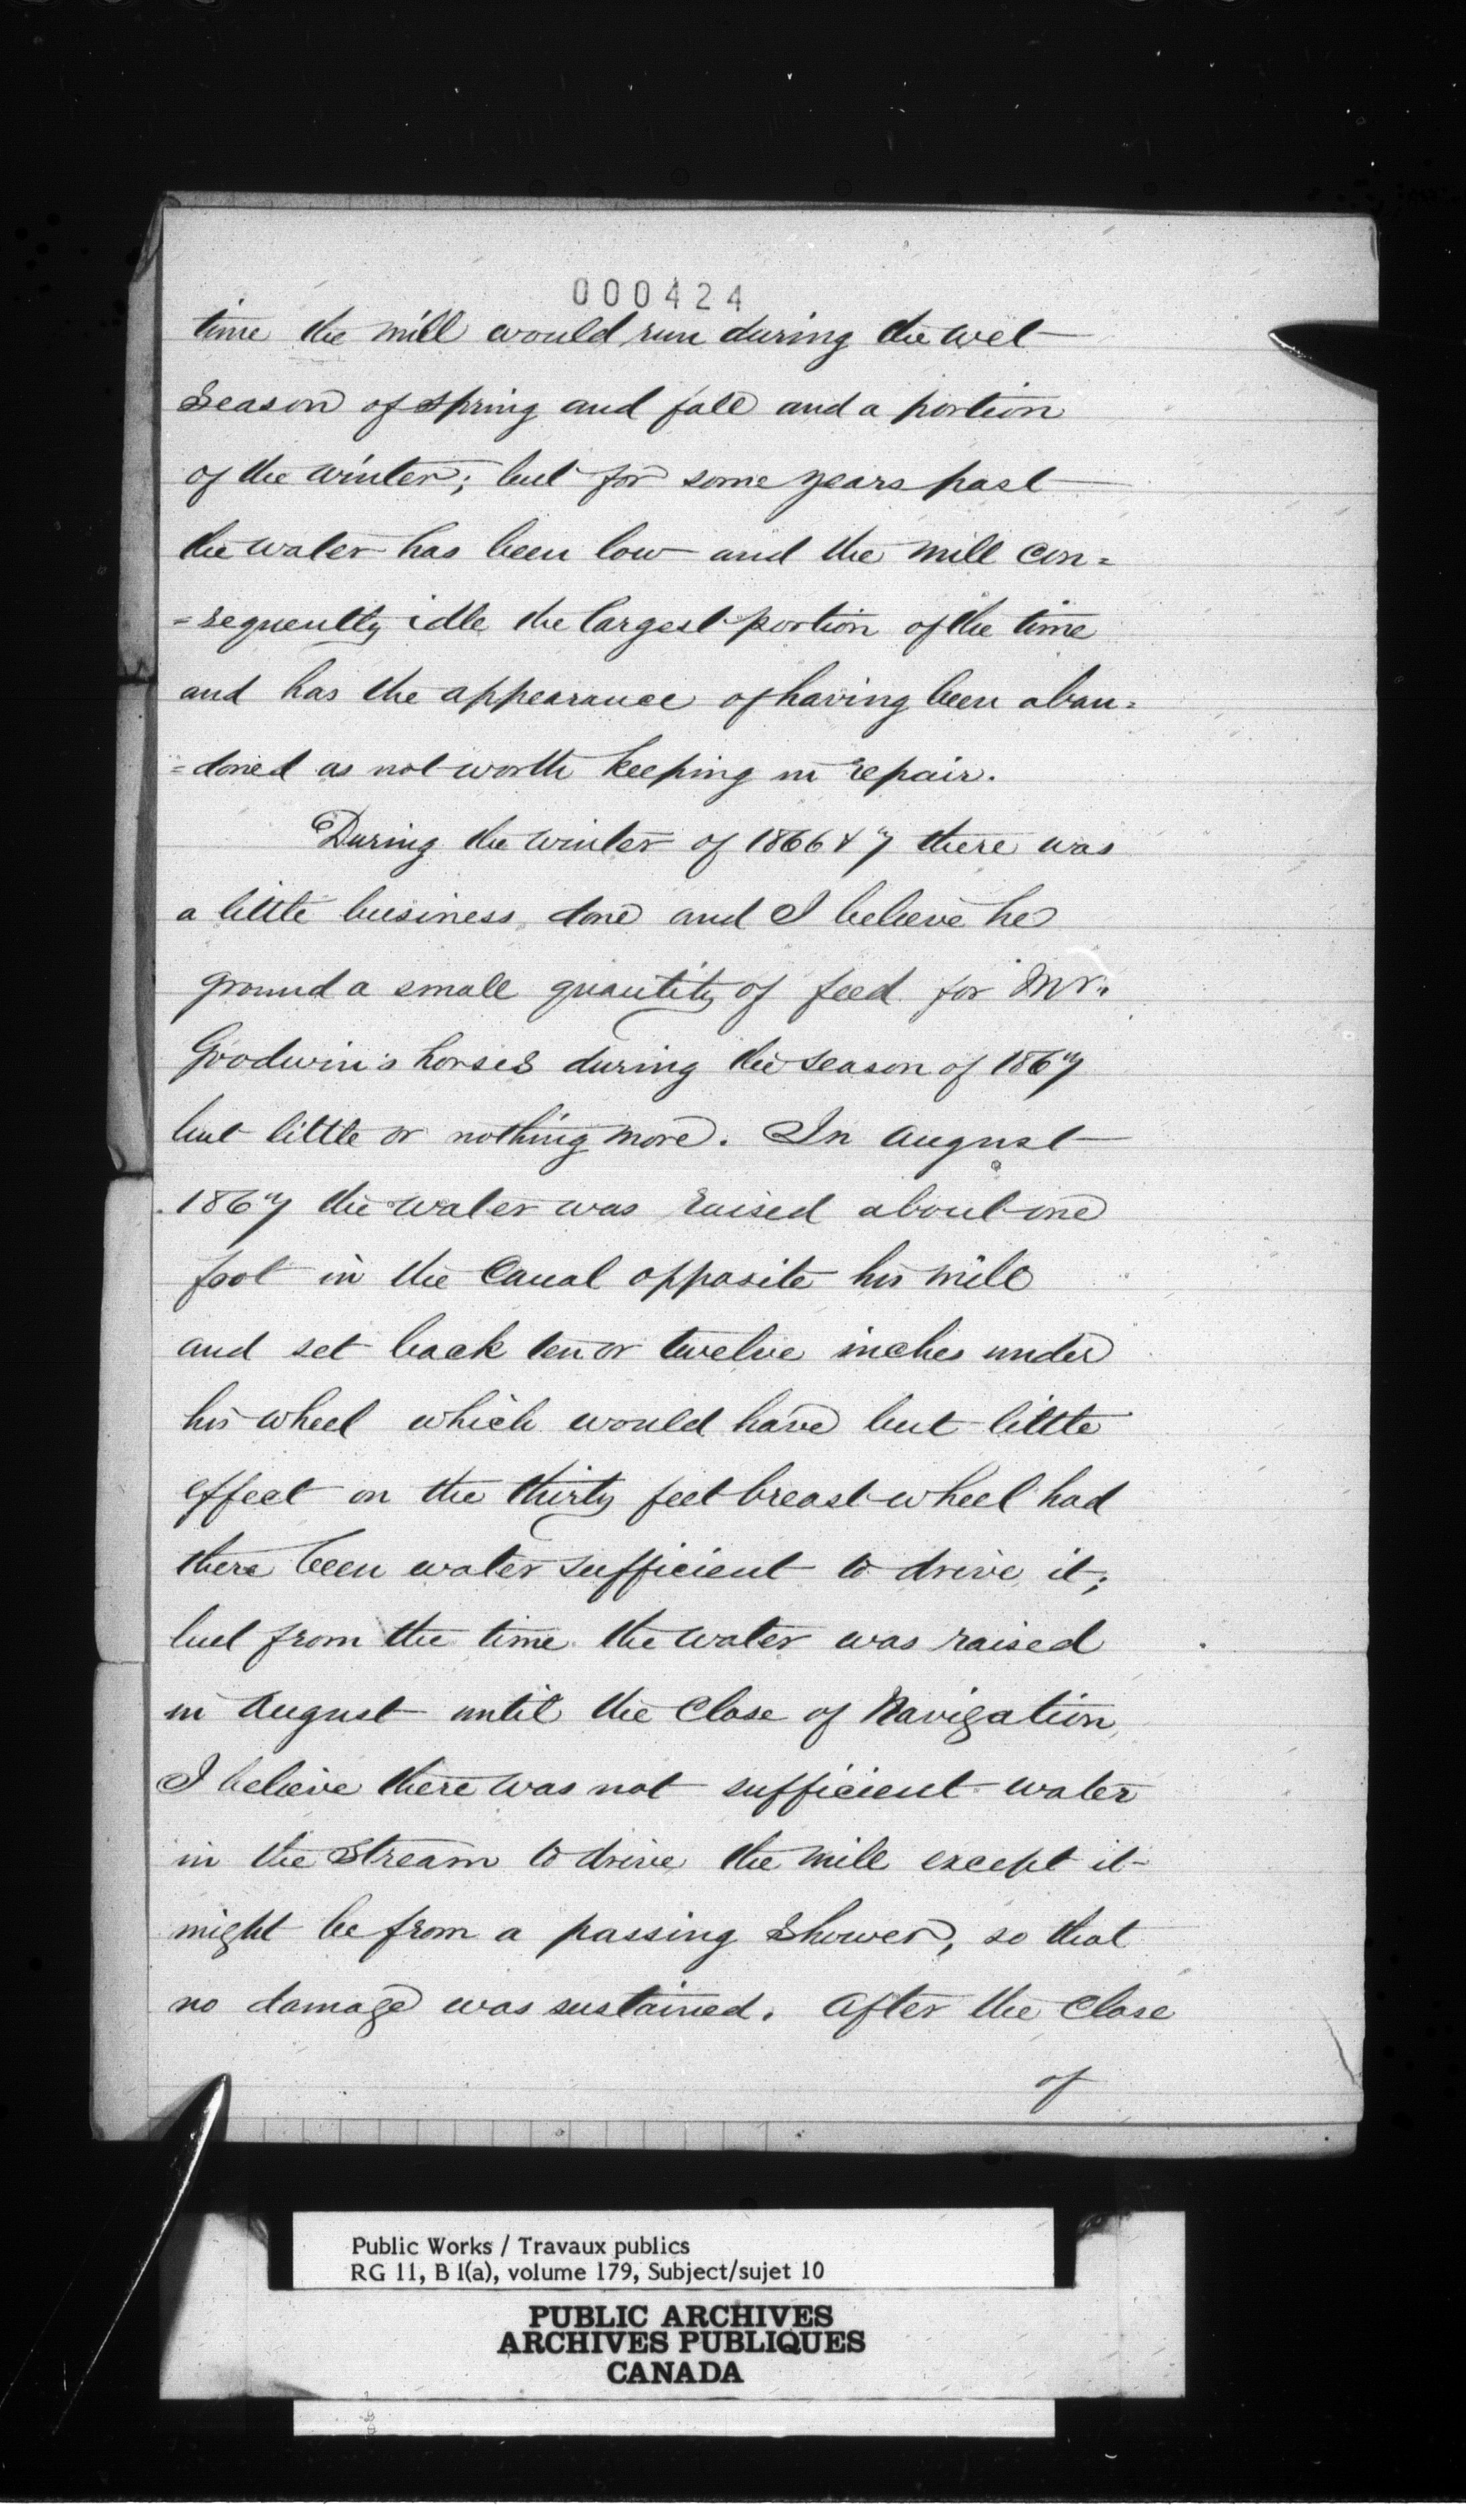 000424
time the mill would run during the wet
Season of spring and fall and a portion
of the winter; but for some years past
the water has been low and the mill con=
=sequently idle the largest portion of the time
and has the appearance of having been aban=
=doned as not worth keeping in repair.
During the winter of 1866 & 7 there was
a little business done and I believe he
ground a small quantity of feed for Mr.
Goodwin's horses during the season of 1867
but little or nothing more. In August
1867 the water was raised about one
foot in the Canal opposite his mill
and set back ten or twelve inches under
his wheel which would have but little
effect on the thirty feet breast wheel had
there been water sufficient to drive it;
but from the time the water was raised
in August until the Close of Navigation,
I believe there was not sufficient water
in the Stream to drive the mill except it
might be from a passing Shower, so that
no damage was sustained. After the Close
of
Public Works / Travaux publics
RG 11, B 1(a), volume 179, Subject/sujet 10
PUBLIC ARCHIVES
ARCHIVES PUBLIQUES
CANADA